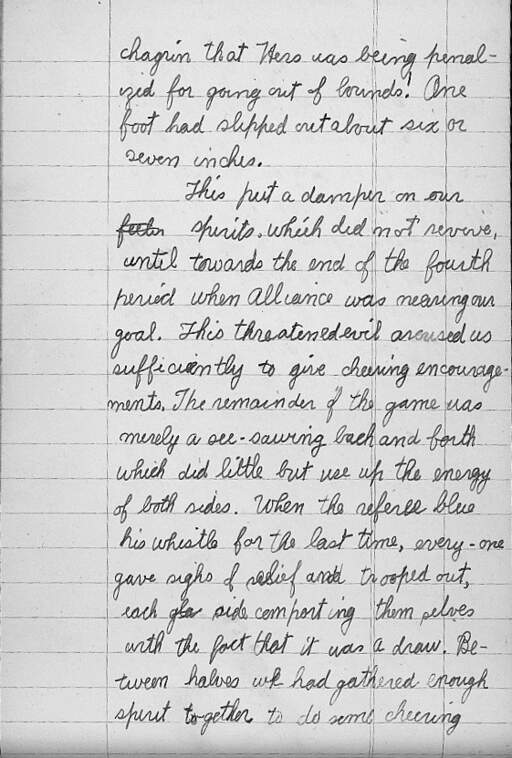 chagrin that Hers was being penal-
ized for going out of bounds! One
foot had slipped out about six or
seven inches.
This put a damper on our
spirits. which did not revive,
until towards the end of the fourth
period when Alliance was nearing our
goal. This threatened evil aroused us
sufficiently to give cheering encourage-
ments. The remainder of the game was
merely a see-sawing back and forth
which did little but use up the energy
of both sides. When the referee blue
his whistle for the last time, every-one
gave sighs of relief and trooped out,
each side comporting them selves
with the fact that it was a draw. Be-
tween halves we had gathered enough
spirit together to do some cheering